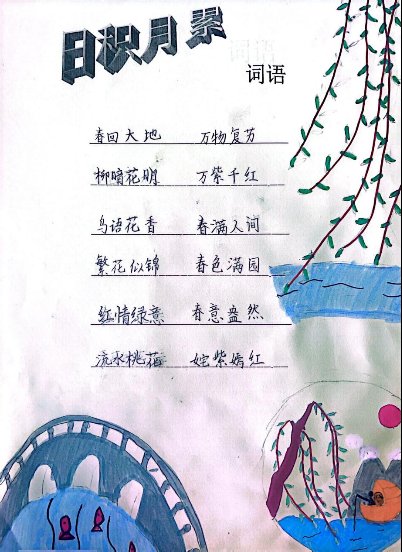 日积月累
词语
春回大地 万物复苏
柳暗花明 万紫千红
鸟语花香 春满人间
繁花似锦 春色满园
红情绿意 春意盎然
流水桃花 姹紫嫣红